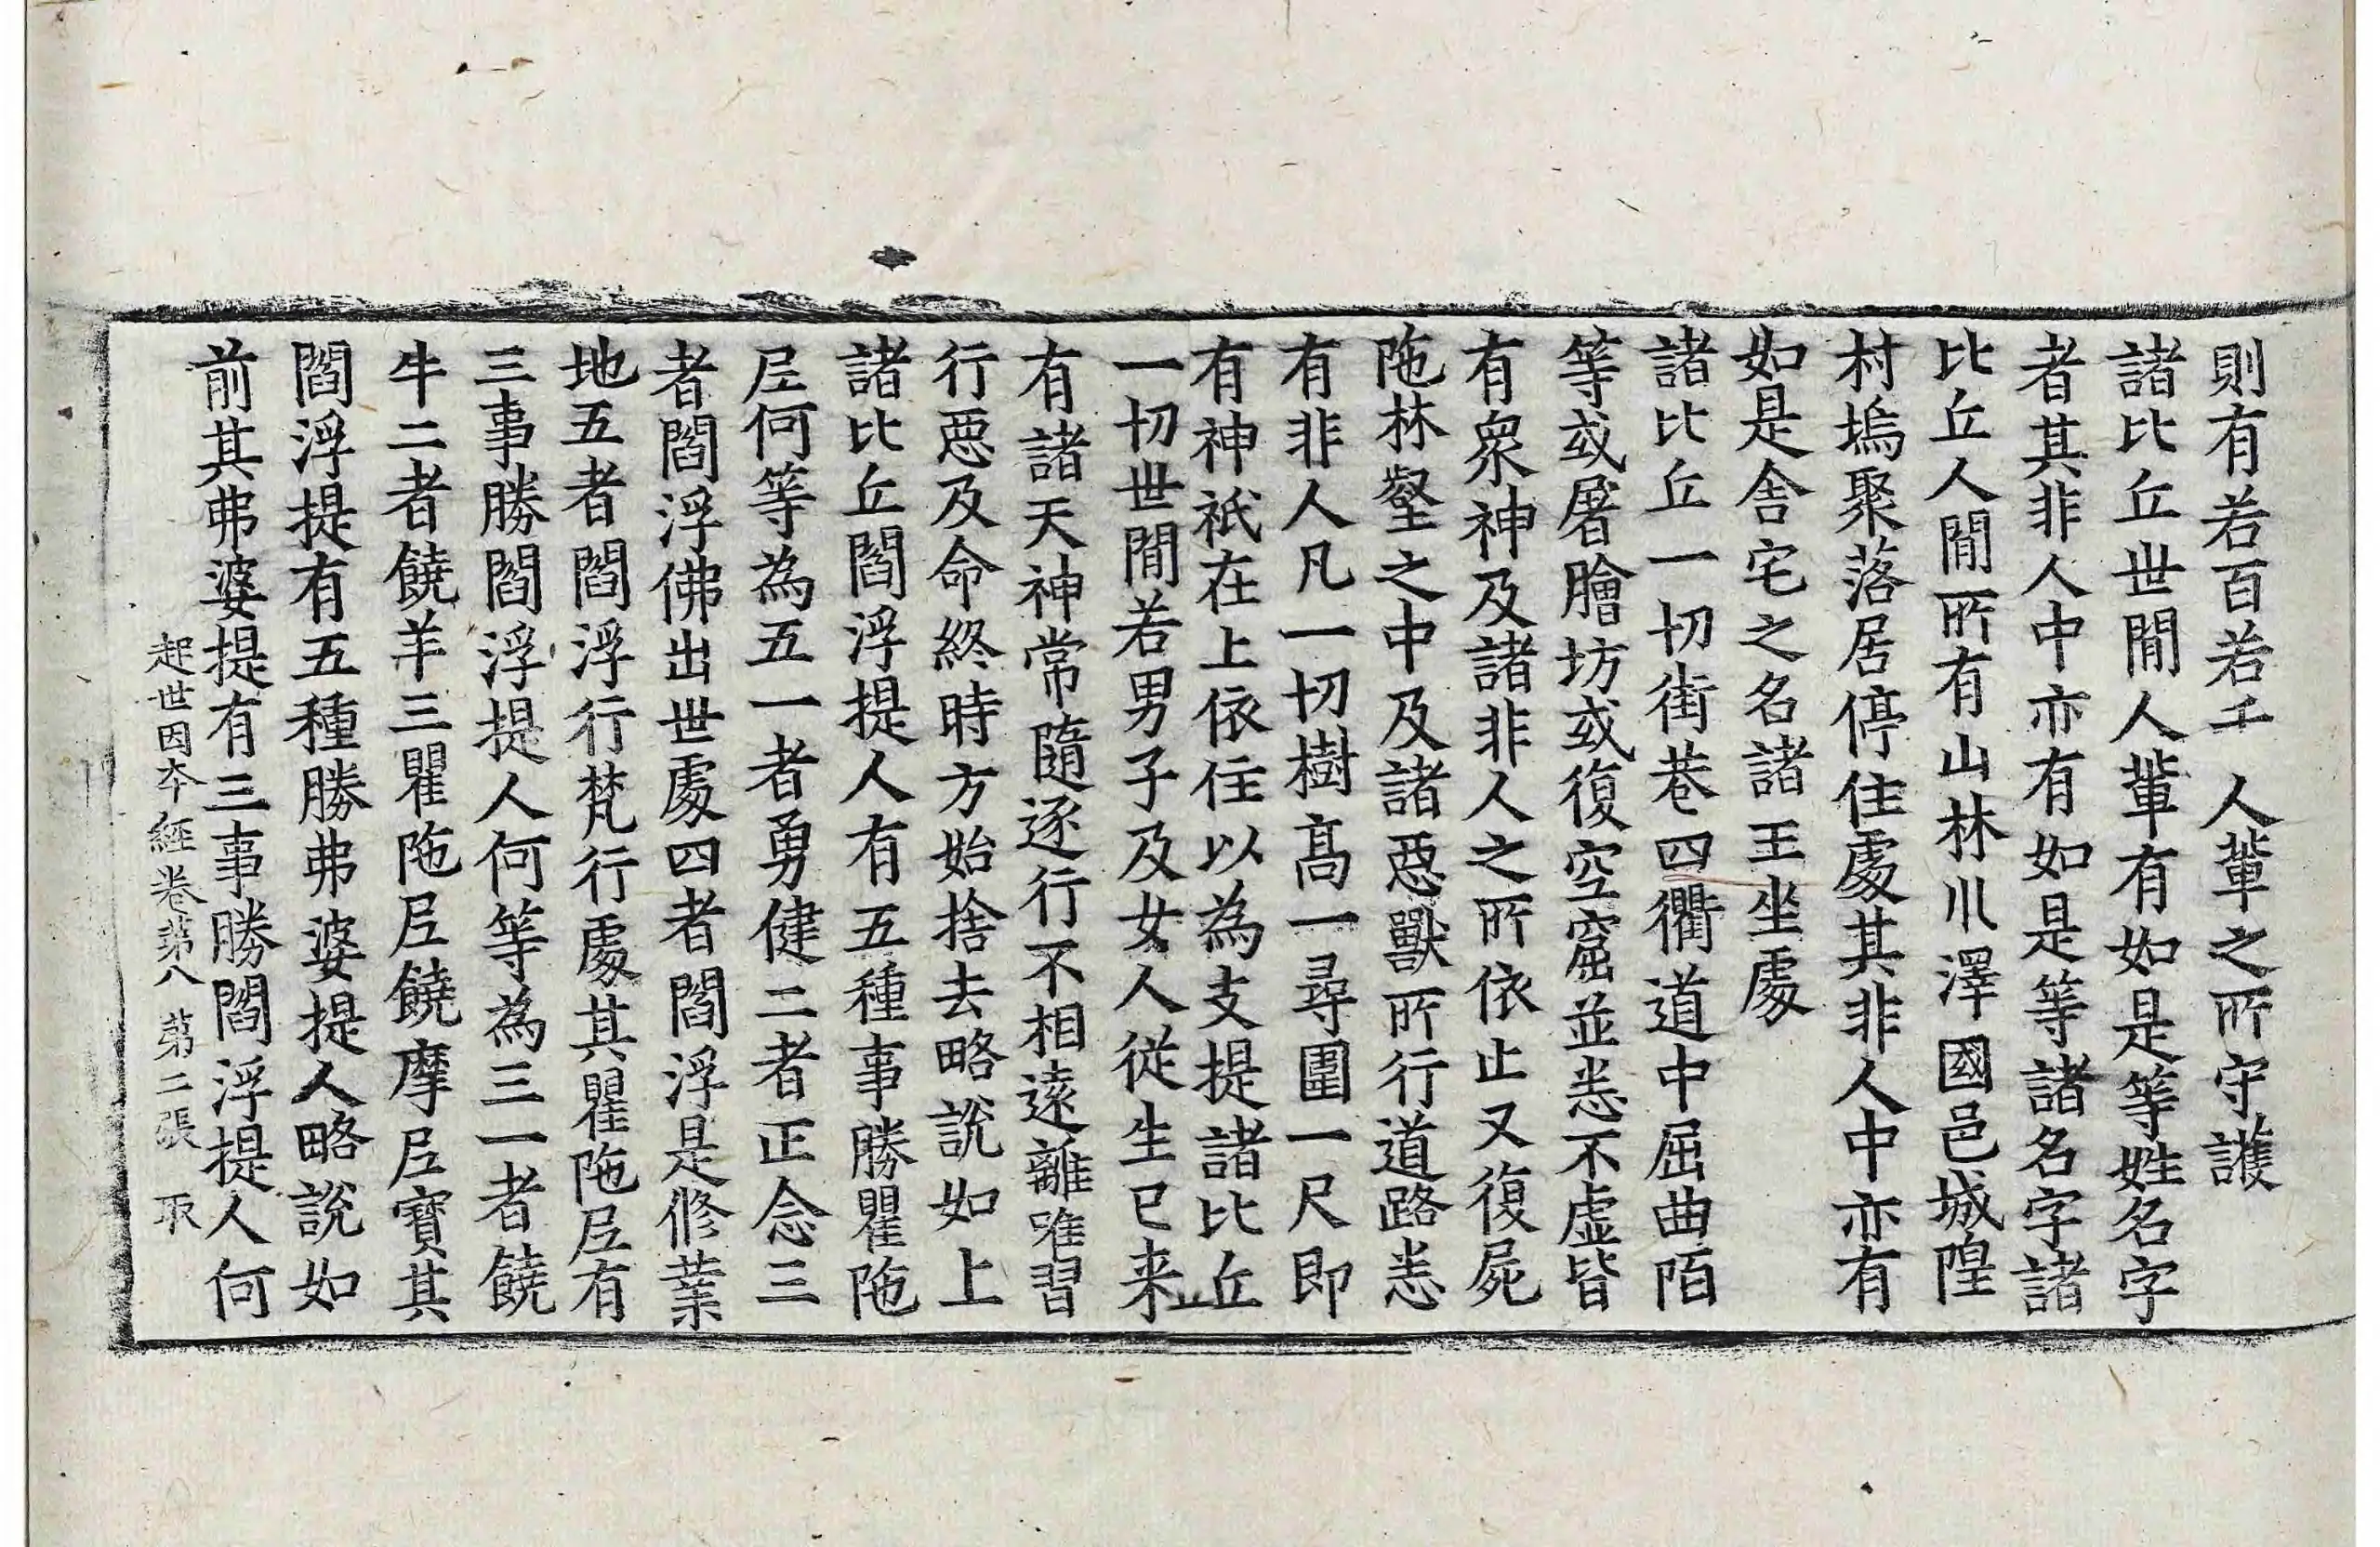 則有若百若千　人軰之所守護
諸比丘世閒人軰有如是等姓名字
者其非人中亦有如是等諸名字諸
比丘人閒所有山林川澤國邑城隍
村塢聚落居停住處其非人中亦有
如是舍宅之名諸王坐處
諸比丘一切街巷四衢道中屈曲陌
等或屠膾坊或復空窟並悉不虛皆
有衆神及諸非人之所依止又復屍
陁林壑之中及諸惡獸所行道路悉
有非人凡一切樹髙一尋圍一尺即
有神祇在上依住以為支提諸比丘
一切世閒若男子及女人從生已来
有諸天神常隨逐行不相遠離唯習
行惡及命終時方始捨去略說如上
諸比丘閻浮提人有五種事勝瞿陁
尼何等為五一者勇健二者正念三
者閻浮佛出世處四者閻浮是修業
地五者閻浮行梵行處其瞿陁尼有
三事勝閻浮提人何等為三一者饒
牛二者饒羊三瞿陁尼饒摩尼寶其
閻浮提有五種勝弗婆提人略說如
前其弗婆提有三事勝閻浮提人何
起世因本經卷第八　第二張　取